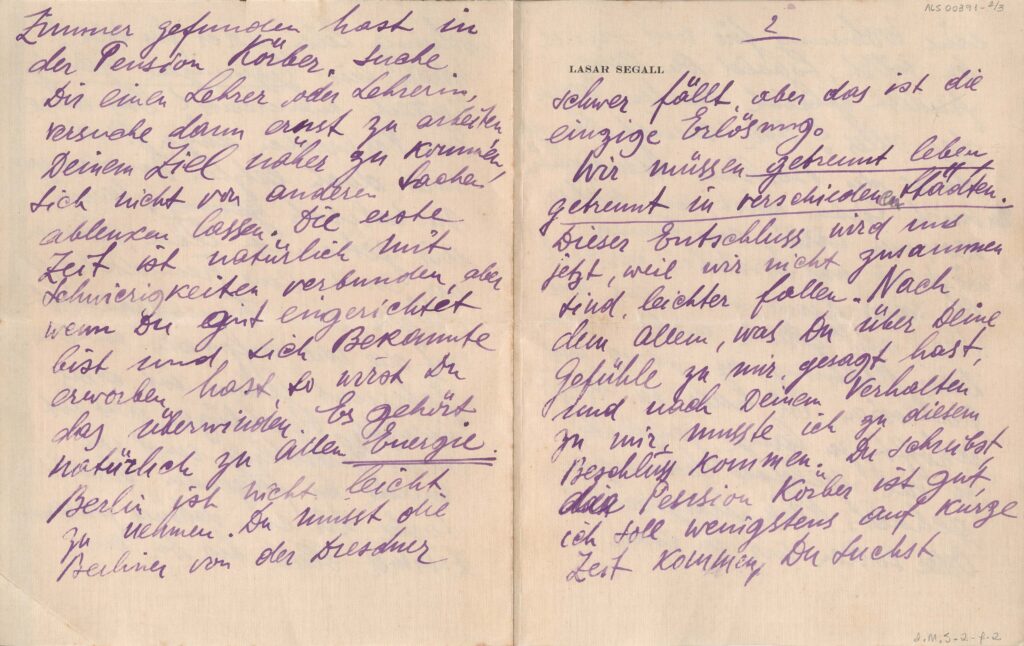 Zimmer gefunden hast in
der Pension Körber. Suche
Dir einen Lehrer oder Lehrerin,
versuche dann ernst zu arbeiten
Deinem Ziel näher zu kommen,
sich nicht von anderen Sachen
ablenken lassen. Die erste
Zeit ist natürlich mit
Schwierigkeiten verbunden, aber
wenn Du gut eingerichtet
bist und sich Bekannte
erworben hast, so wirst Du
das überwinden. Es gehört
natürlich zu allen Energie.
Berlin ist nicht leicht
zu nehmen. Du musst die
Berliner von der Dresdner
ALS 00391-2/3
2
LASAR SEGALL
schwer fällt, aber das ist die
einzige Erlösung.
Wir müssen getrennt leben
getrennt in verschiedenen Städten.
Dieser Entschluss wird uns
jetzt, weil wir nicht zusammen
sind, leichter fallen. Nach
dem allem, was Du über Deine
Gefühle zu mir gesagt hast,
und nach Deinem Verhalten
zu mir, musste ich zu diesem
Beschluss kommen. Du schrubst
Pension Körber ist gut,
ich soll wenigstens auf kurze
Zeit kommen, Du suchst